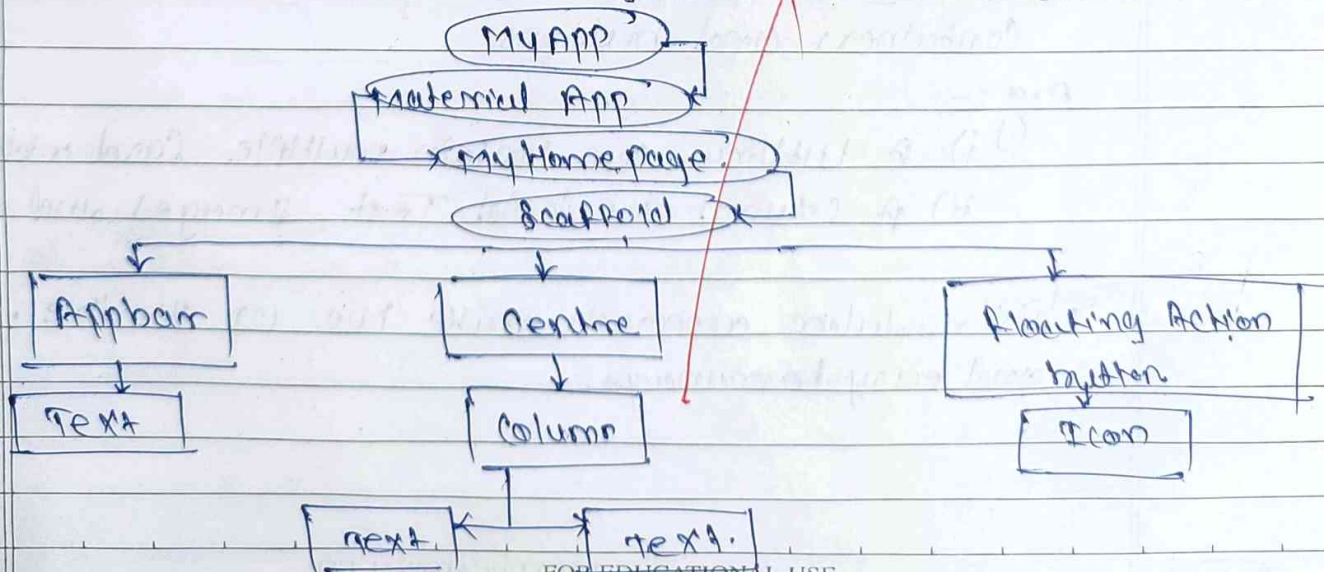 My App
Material App
My Homepage
Scaffold
Appbar
Centre
Floating Action
button
Text
Column
Icon
Text
Text.
FOR EDUCATIONAL USE